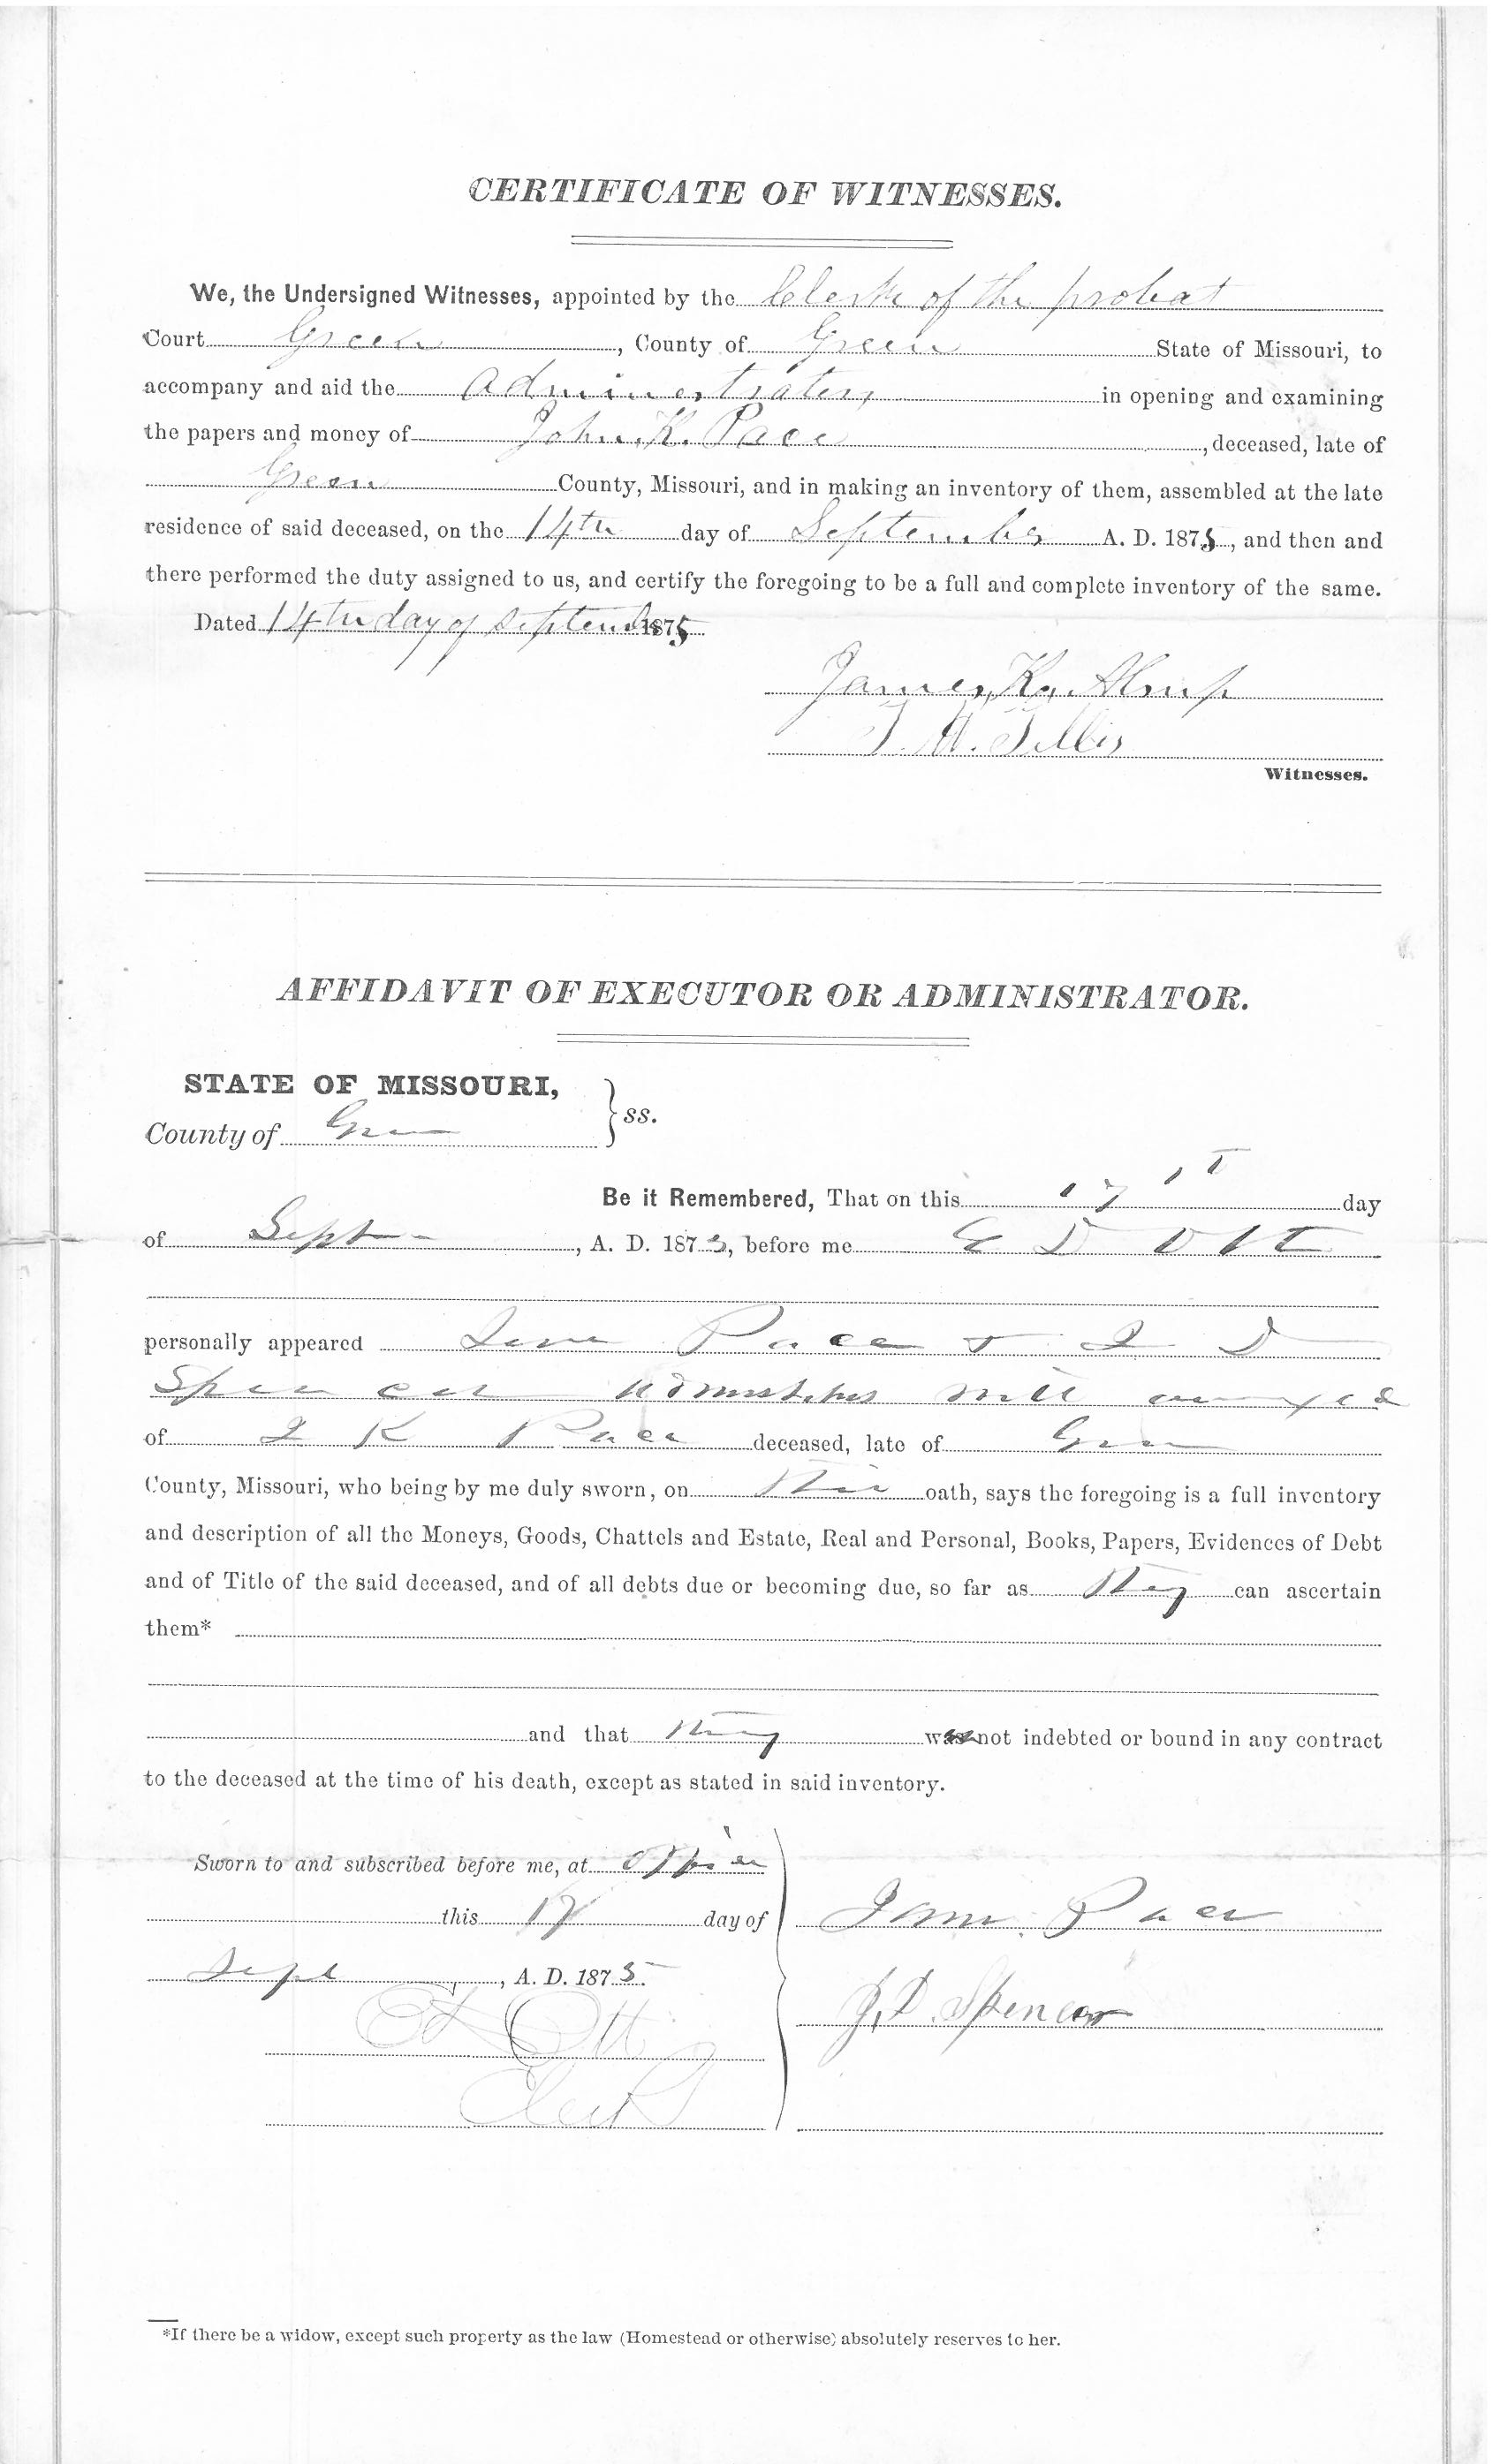 CERTIFICATE OF WITNESSES.
We, the Undersigned Witnesses, appointed by the Clerk of the probat
Court Green, County of Green State of Missouri, to
accompany and aid the Administrators in opening and examining
the papers and money of John K. Pace, deceased, late of
Green County, Missouri, and in making an inventory of them, assembled at the late
residence of said deceased, on the 14th day of September A. D. 1875, and then and
there performed the duty assigned to us, and certify the foregoing to be a full and complete inventory of the same.
Dated 14th day of September 1875
James K. Alsup
Witnesses.
AFFIDAVIT OF EXECUTOR OR ADMINISTRATOR.
STATE OF MISSOURI,
County of Green } ss.
Be it Remembered, That on this 17 day
of Sept, A. D. 1875, before me E D Ott
personally appeared Pace & J D
Spencer with annexed
of J K Pace deceased, late of Green
County, Missouri, who being by me duly sworn, on Their oath, says the foregoing is a full inventory
and description of all the Moneys, Goods, Chattels and Estate, Real and Personal, Books, Papers, Evidences of Debt
and of Title of the said deceased, and of all debts due or becoming due, so far as They can ascertain
them*
and that They were not indebted or bound in any contract
to the deceased at the time of his death, except as stated in said inventory.
Sworn to and subscribed before me, at office
this 17 day of Pace
Sept, A. D. 1875
J. D. Spencer
E D Ott
Clerk
*If there be a widow, except such property as the law (Homestead or otherwise) absolutely reserves to her.